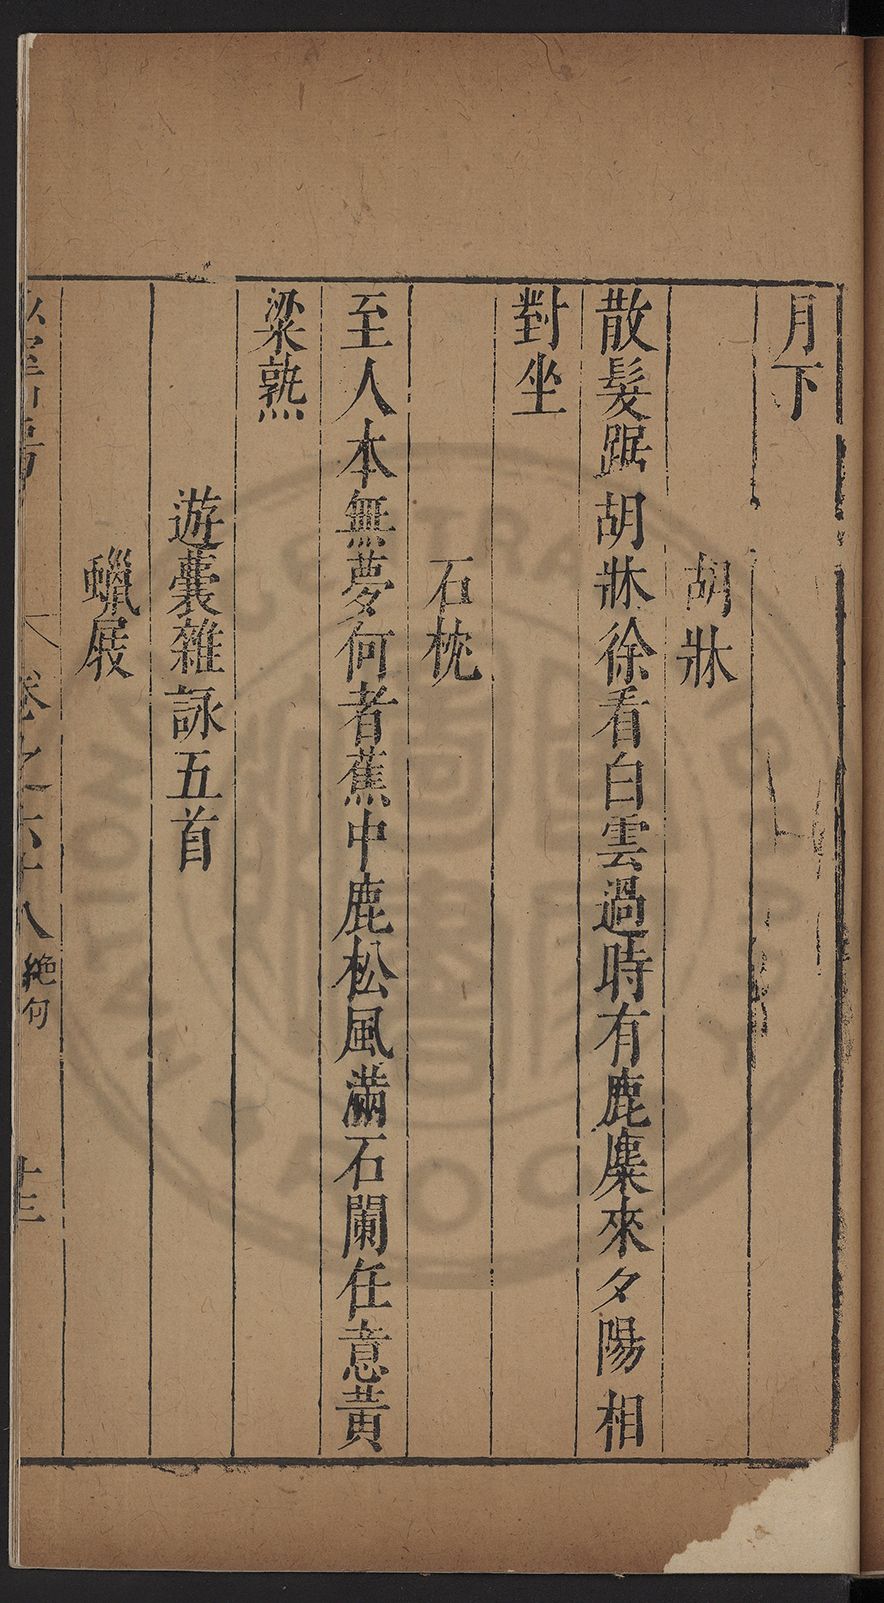 月下
胡牀
散髮踞胡牀徐看白雲過時有鹿麋來夕陽相
對坐
石枕
至人本無夢何者蕉中鹿松風滿石闌任意黃
粱熟
遊囊雜詠五首
蠟屐
卷之六十八 絶句 十三